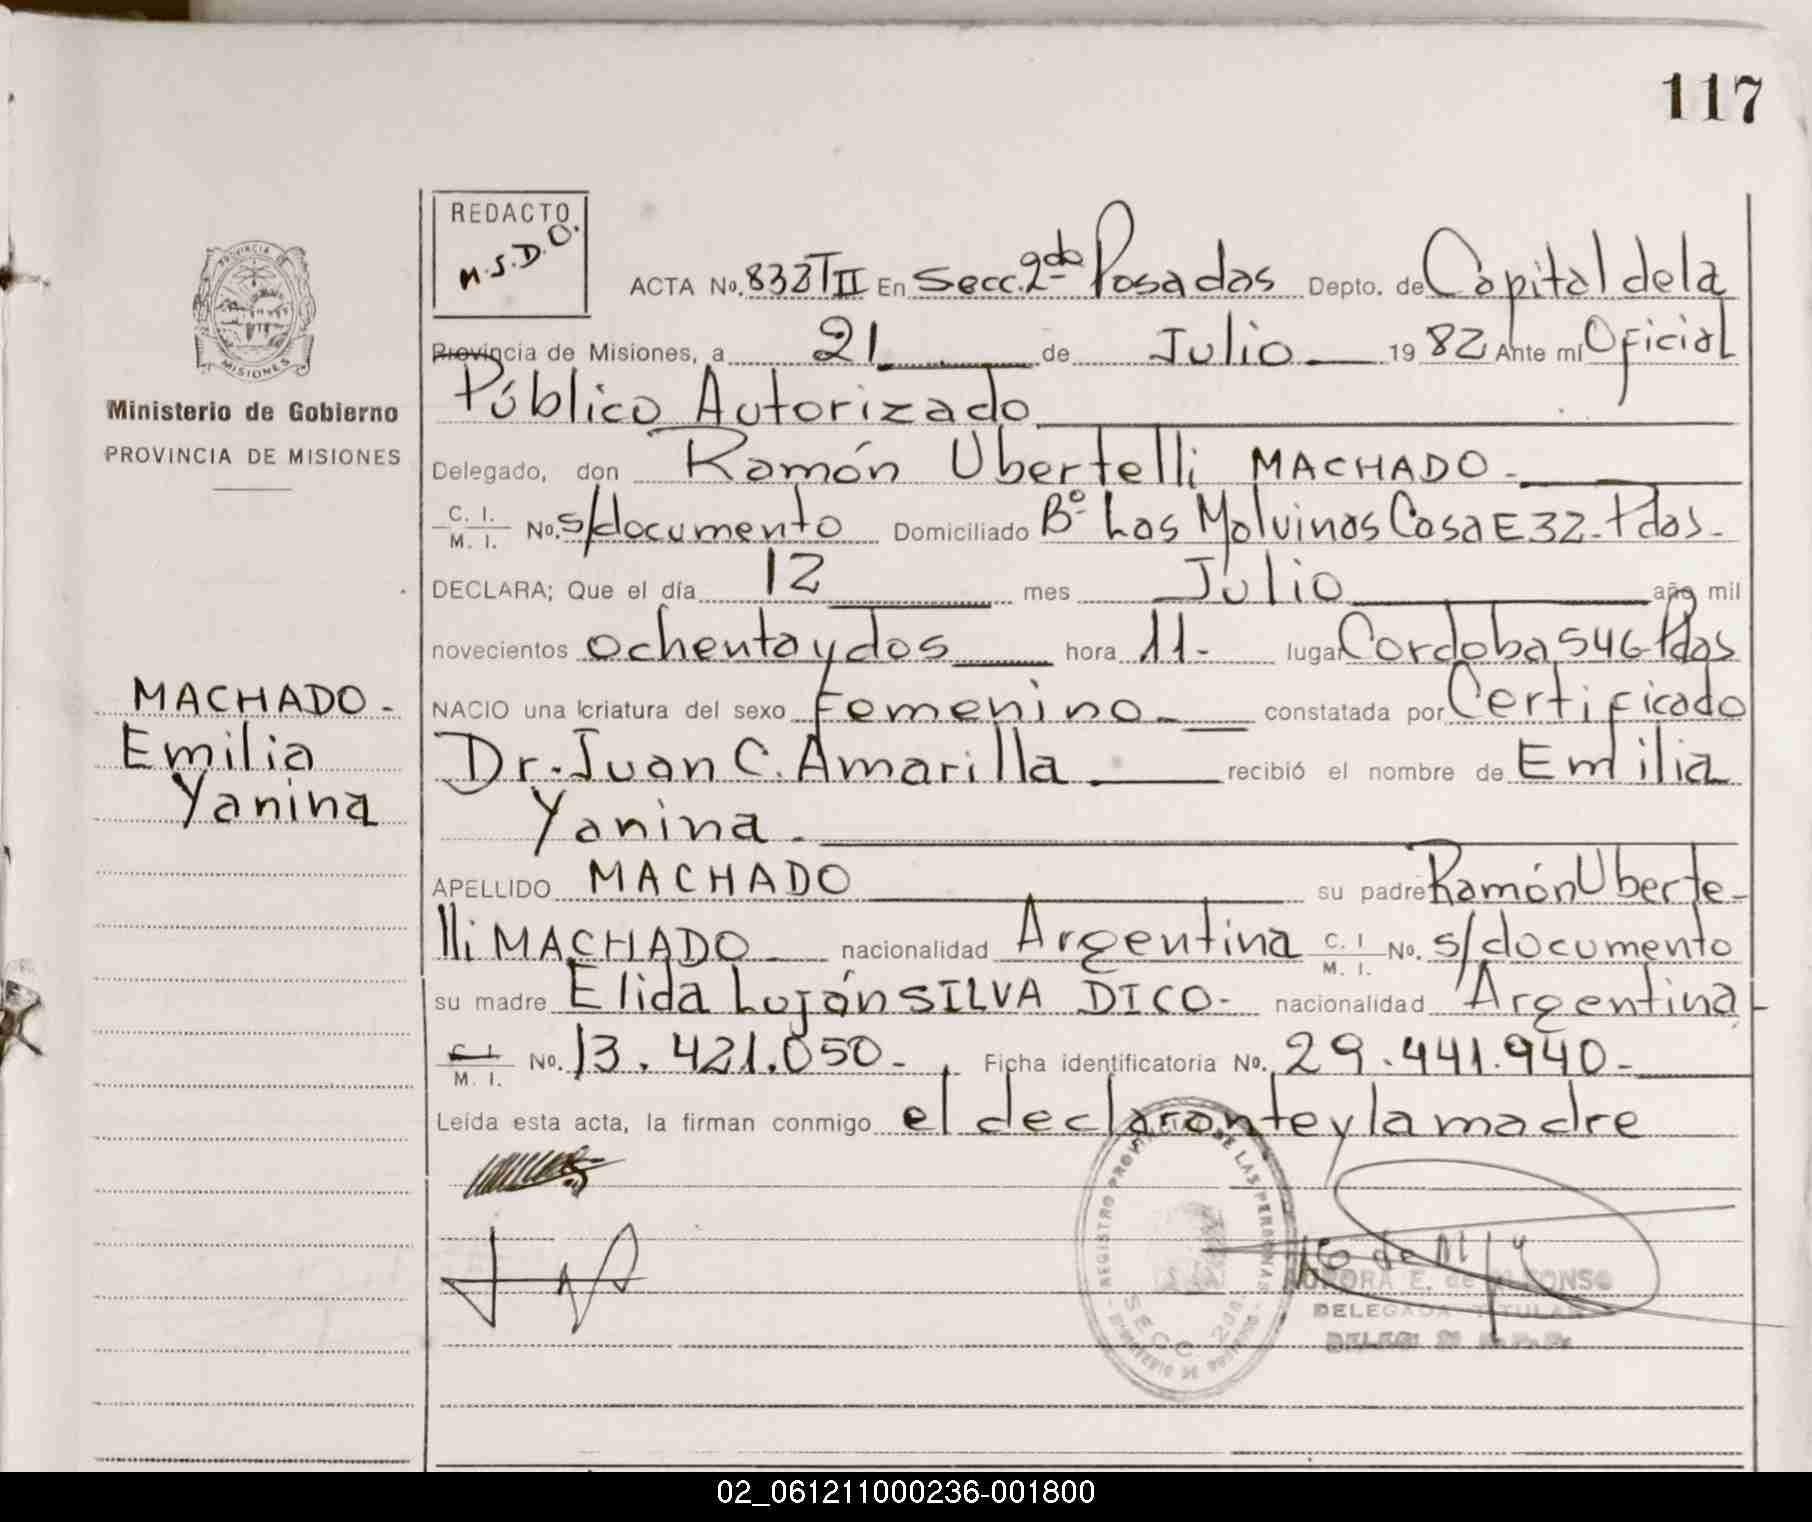 117
REDACTO
M.S.D.O.
ACTA No. 833 TII En Secc. 2da Posadas Depto. de Capital de la
Provincia de Misiones, a 21 de Julio 1982 Ante mí Oficial
Público Autorizado
Delegado, don Ramón Ubertelli MACHADO.
C. I.
M. I. No. s/documento Domiciliado Bº Las Malvinas Casa E 32 - Pdas -
DECLARA; Que el día 12 mes Julio año mil
novecientos ochenta y dos hora 11.- lugar Cordoba 546 Pdas
NACIO una criatura del sexo Femenino. constatada por Certificado
Dr. Juan C. Amarilla recibió el nombre de Emilia
Yanina.
APELLIDO MACHADO su padre Ramón Uberte-
lli MACHADO nacionalidad Argentina C. I. M. I. No. s/documento
su madre Elida Luján SILVA DICO- nacionalidad Argentina-
C. I. M. I. No. 13.421.050- Ficha identificatoria No. 29.441.940-
Leída esta acta, la firman conmigo el declarante y la madre
PROVINCIA DE
MISIONES
Ministerio de Gobierno
PROVINCIA DE MISIONES
MACHADO-
Emilia
Yanina
REGISTRO PROVINCIAL DE LAS PERSONAS
SECC. 2da.
AURORA E. de ALFONSO
DELEGADA TITULAR
02_061211000236-001800